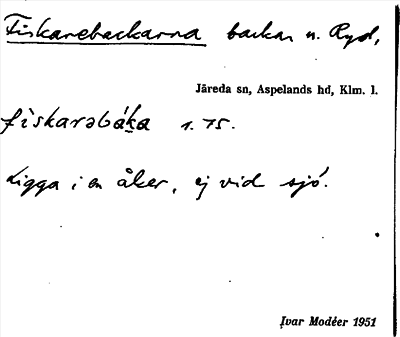 Fiskarebackarna backar n. Ryd,
Järeda sn, Aspelands hd, Klm. l.
fiskarəbáka 1.75.
Ligga i en åker, ej vid sjö.
Ivar Modéer 1951